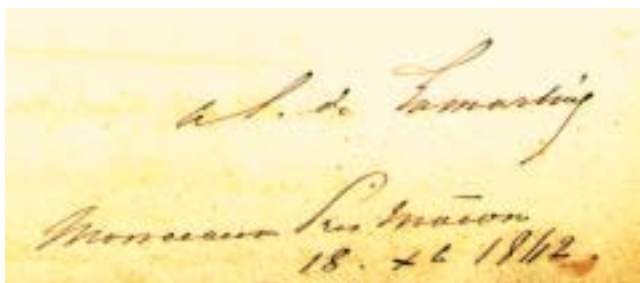 al. de Lamartine
Monceaux près Mâcon
18. Xb 1842.